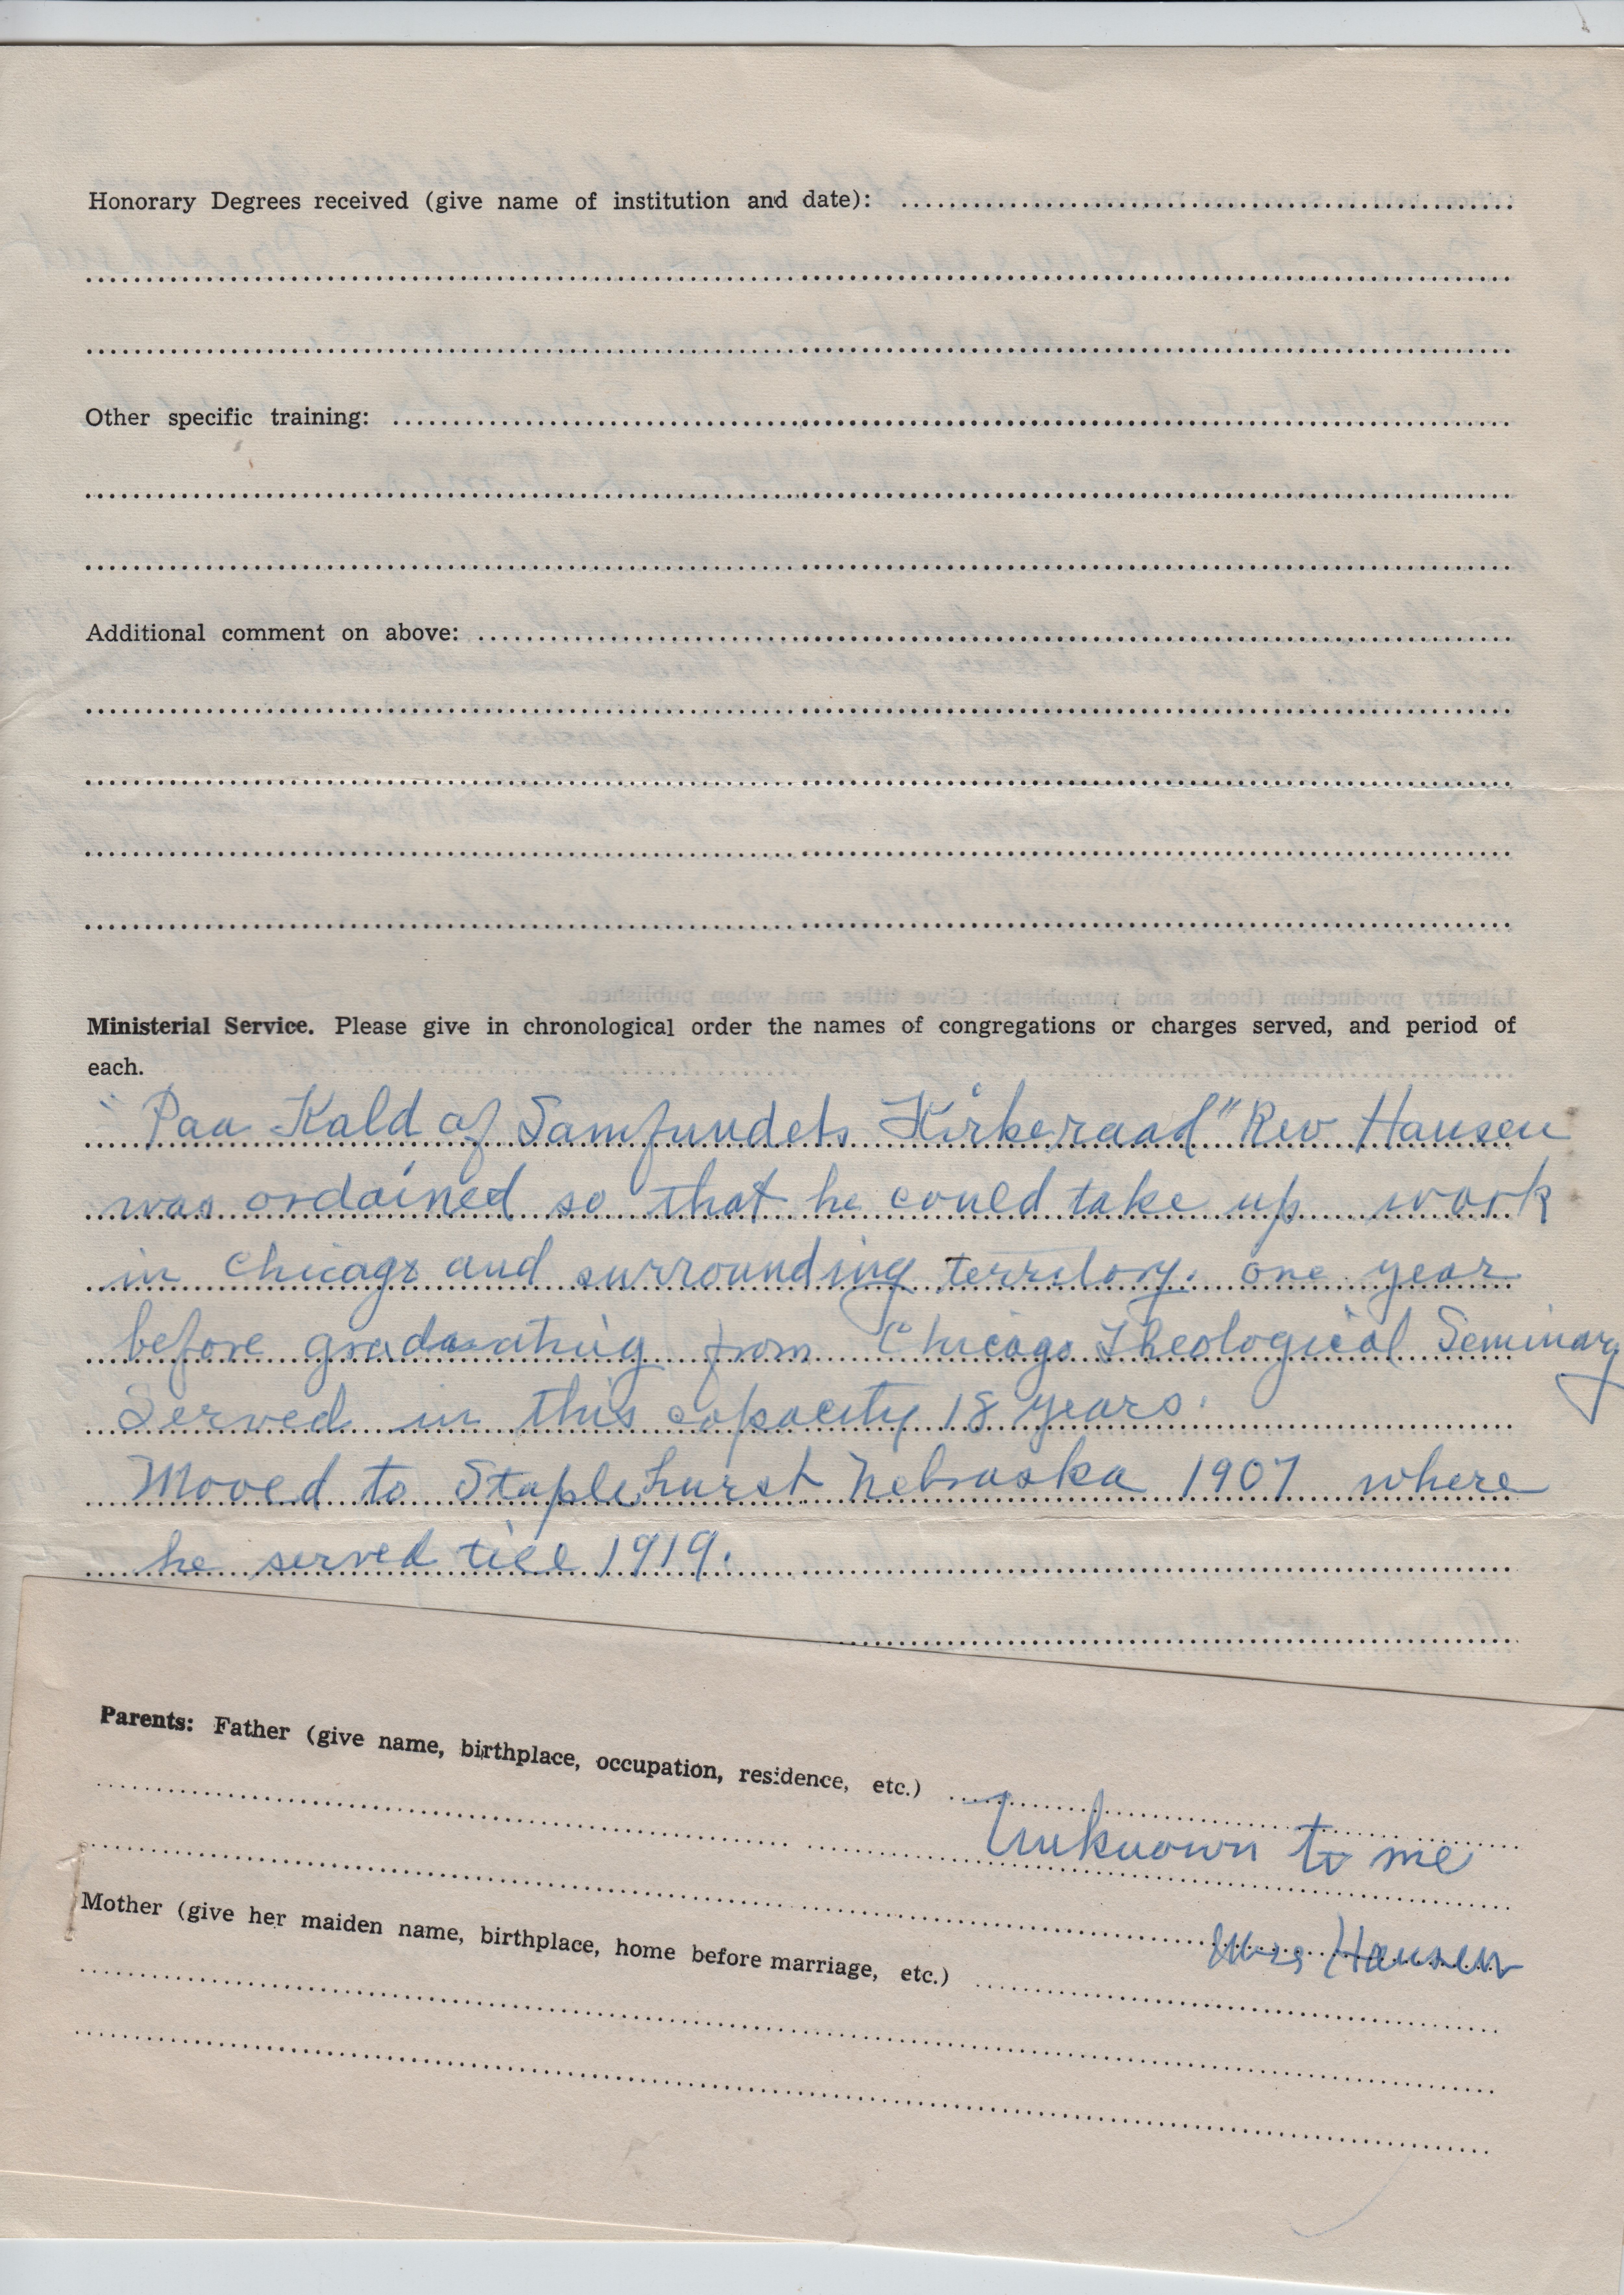 Honorary Degrees received (give name of institution and date):
Other specific training:
Additional comment on above:
Ministerial Service. Please give in chronological order the names of congregations or charges served, and period of
each.
"Paa Kald af Samfundets Kirkeraad" Rev Hansen
was ordained so that he could take up work
in Chicago and surrounding territory. one year
before graduating from Chicago Theological Seminary
Served in this capacity 18 years.
Moved to Staplehurst Nebraska 1907 where
he served till 1919.
Parents: Father (give name, birthplace, occupation, residence, etc.)
Unknown to me
Mrs Hansen
Mother (give her maiden name, birthplace, home before marriage, etc.)